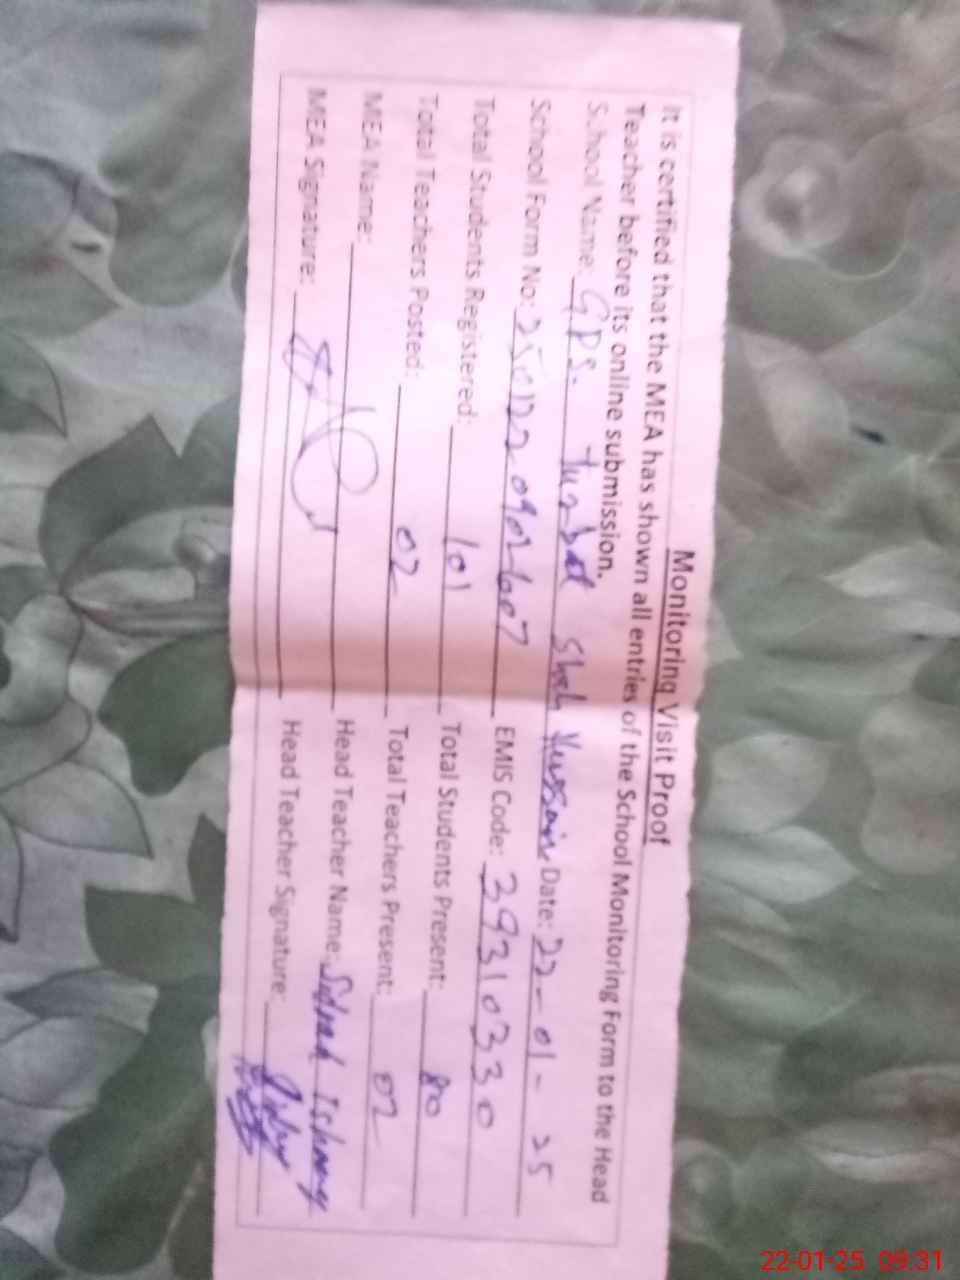 Monitoring Visit Proof
It is certified that the MEA has shown all entries of the School Monitoring Form to the Head
Teacher before its online submission.
School Name: G.P.S. Shah Hussain Date: 22-01-25
School Form No: 2501220902607 EMIS Code: 39310330
Total Students Registered: 101 Total Students Present: 80
Total Teachers Posted: 02 Total Teachers Present: 02
MEA Name: Head Teacher Name: Sidrah
MEA Signature: Head Teacher Signature:
22-01-25 09:31